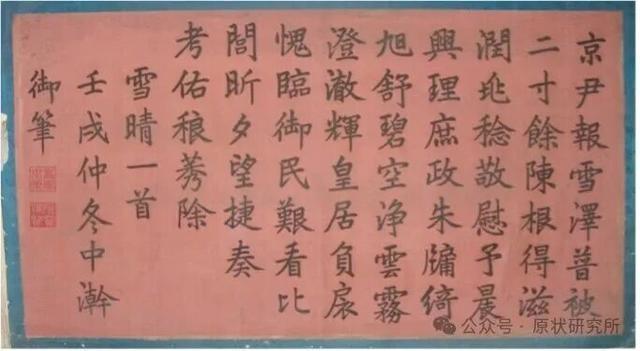 京尹報雪澤普被
二寸餘陳根得滋
潤兆稔敬慰予晨
興理庶政朱牖綺
旭舒碧空净雲霧
澄澈輝皇居負扆
愧臨御民艱看比
閭昕夕望捷奏
考佑稂莠除
雪晴一首
壬戌仲冬中澣
御筆
公众号 · 原状研究所